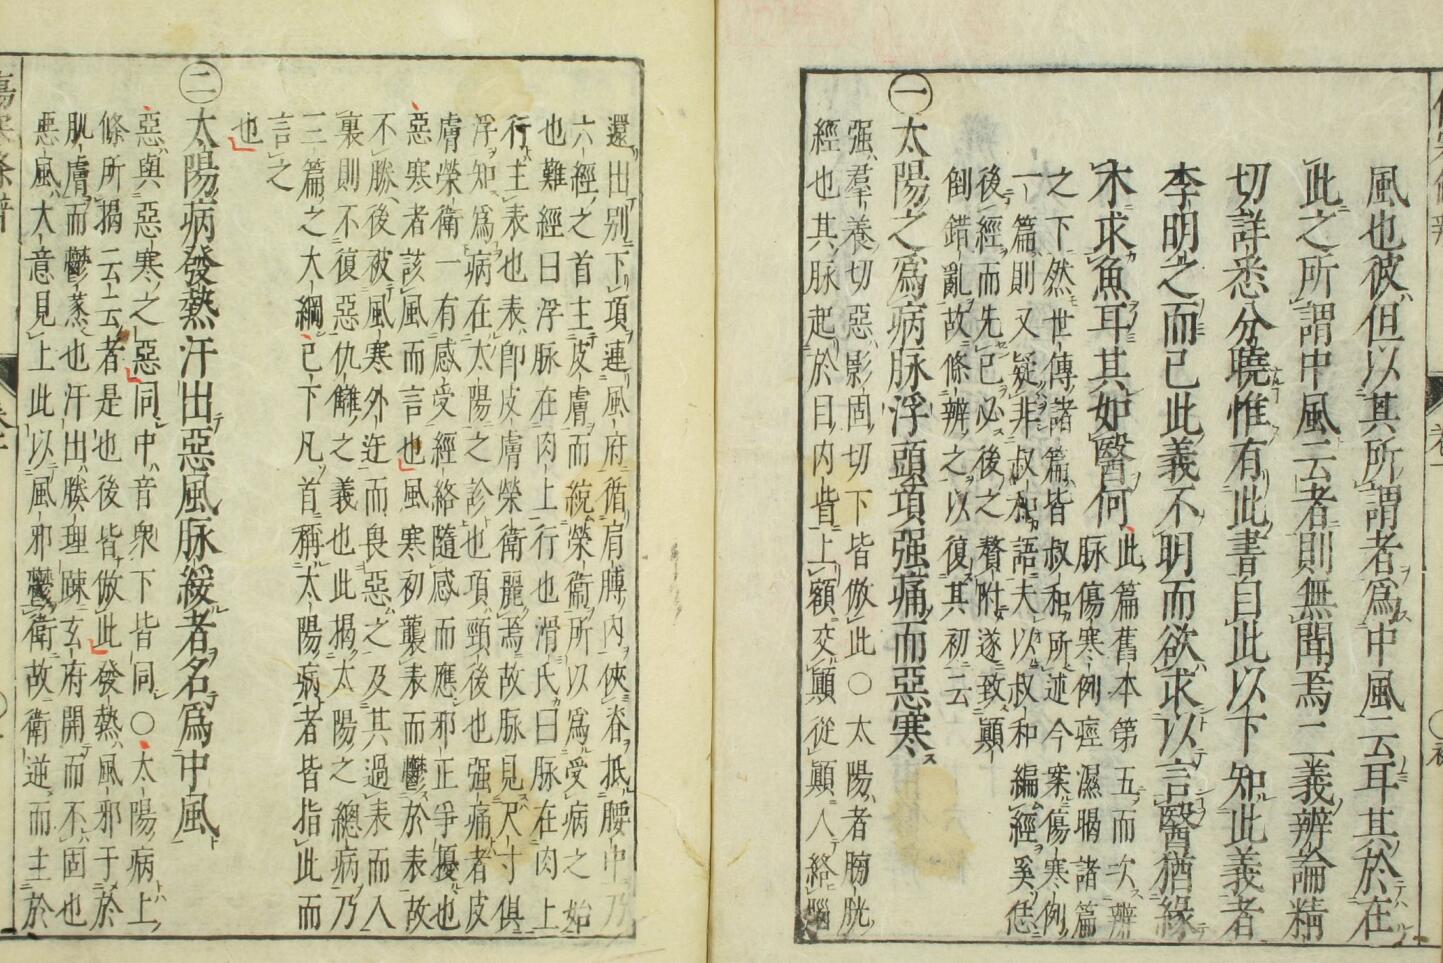 風也彼但以其所謂者爲中風云耳其於在
此之所謂中風云者則無聞焉二義辨論精
切詳悉分曉惟有此書自此以下知此義者
李明之而已此義不明而欲求以言醫猶緣
木求魚耳其如醫何
此篇舊本第五而次辨
脉傷寒例痙濕暍諸篇
之下然世傳諸篇皆叔和所述今案傷寒例
一篇則又疑非叔和語夫以叔和編經奚恁
後經而先已必後之贅附遂致顚
倒錯亂故條辨之以復其初云
㊀太陽之爲病脉浮頭項强痛而惡寒
强羣養切惡影固切下皆倣此○太陽者膀胱
經也其脉起於目內眥上顧交顚從顚入絡腦
還出别下項連風府循肩膊內俠脊抵腰中乃
六經之首主皮膚而統榮衞所以爲受病之始
也難經曰浮脉在肉上行也滑氏曰脉在肉上
行主表也表卽皮膚榮衞麗焉故脉見尺寸俱
浮知爲病在太陽之診也項頸後也强痛者皮
膚榮衞一有感受經絡隨感而應邪正爭擾也
惡寒者該風而言也風寒初襲表而鬱於表故
不勝後被風寒外迕而畏惡之及其過表而入
裏則不復惡仇讎之義也此揭太陽之總病乃
三篇之大綱已下凡首稱太陽病者皆指此而
言之
也
㊁太陽病發熱汗出惡風脉緩者名爲中風
惡與惡寒之惡同中音衆下皆同○太陽病上
條所揭云云者是也後皆倣此發熱風邪于於
肌膚而鬱蒸也汗出腠理踈玄府開而不固也
惡風大意見上此以風邪鬱衞故衞逆而主於
傷寒條辨
卷一